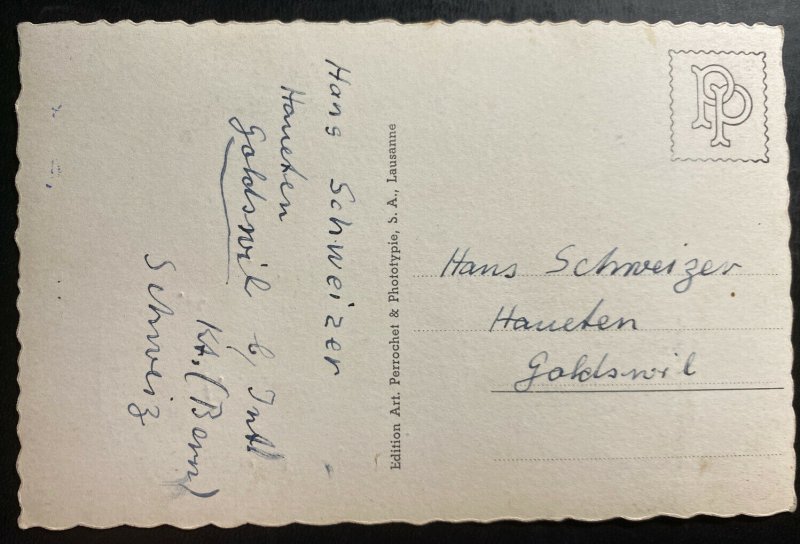 Hans Schweizer
Haueten
Goldswil b, Intl
Kt. (Bern)
Schweiz
Edition Art. Perrochet & Phototypie, S. A., Lausanne
PP
Hans Schweizer
Haueten
Goldswil